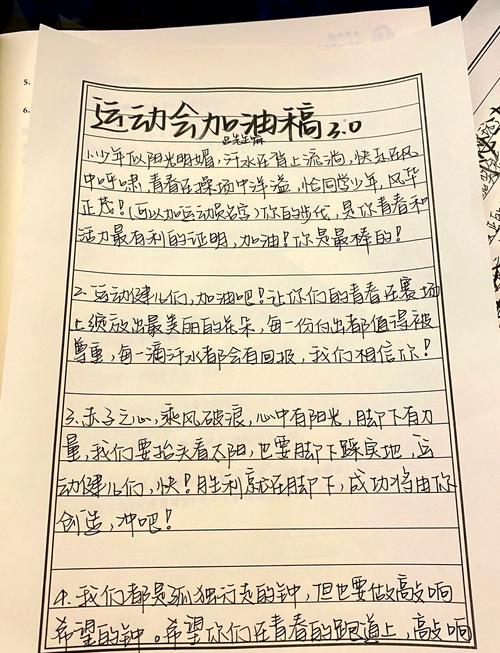 5.
6.
运动会加油稿3.0
1.少年似阳光明媚，汗水在背上流淌，快点在风
中呼啸，青春在操场中洋溢，恰同学少年，风华
正茂！（可以加运动员名字）你的步伐，是你青春和
活力最有利的证明，加油！你是最棒的！
2.运动健儿们，加油吧！让你们的青春在赛场
上绽放出最美丽的花朵，每一份付出都值得被
尊重，每一滴汗水都会有回报，我们相信你！
3.赤子之心，乘风破浪，心中有阳光，脚下有力
量，我们要抬头看太阳，也要脚下踩实地，运
动健儿们，快！胜利就在脚下，成功将由你
创造，冲吧！
4.我们都是孤独行走的钟，但也要做敲响
希望的钟。希望你们在青春的跑道上，敲响